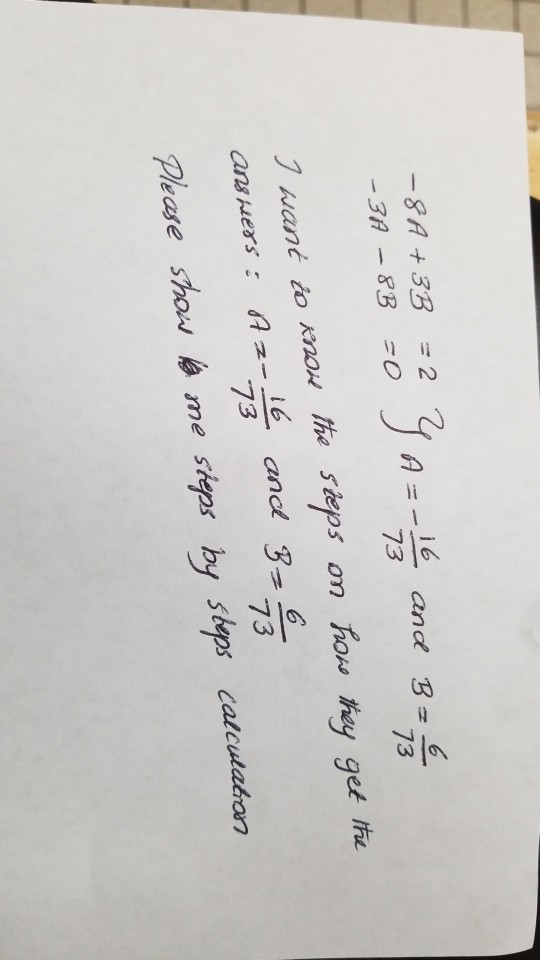 -8A + 3B = 2 } A = -16/73 and B = 6/73
-3A - 8B = 0
I want to know the steps on how they get the
answers: A = -16/73 and B = 6/73
Please show me steps by steps calculation